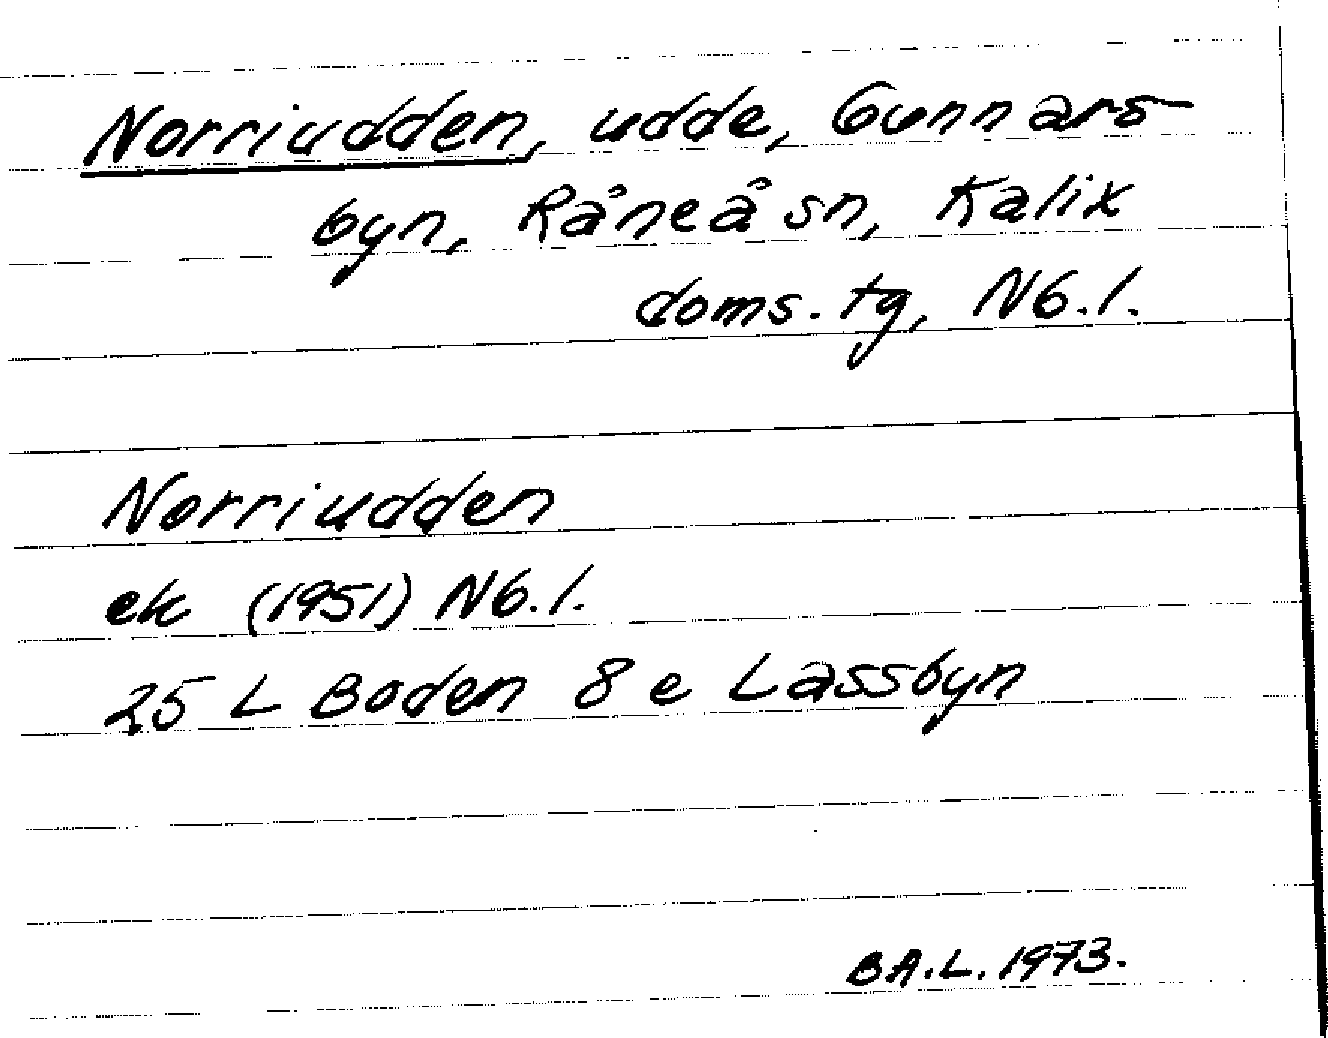 Norriudden, udde, Gunnars-
byn, Råneå sn, Kalix
doms. tg, Nb. l.
Norriudden
ek (1951) Nb. l.
25 L Boden 8 e Lassbyn
BA.L. 1973.